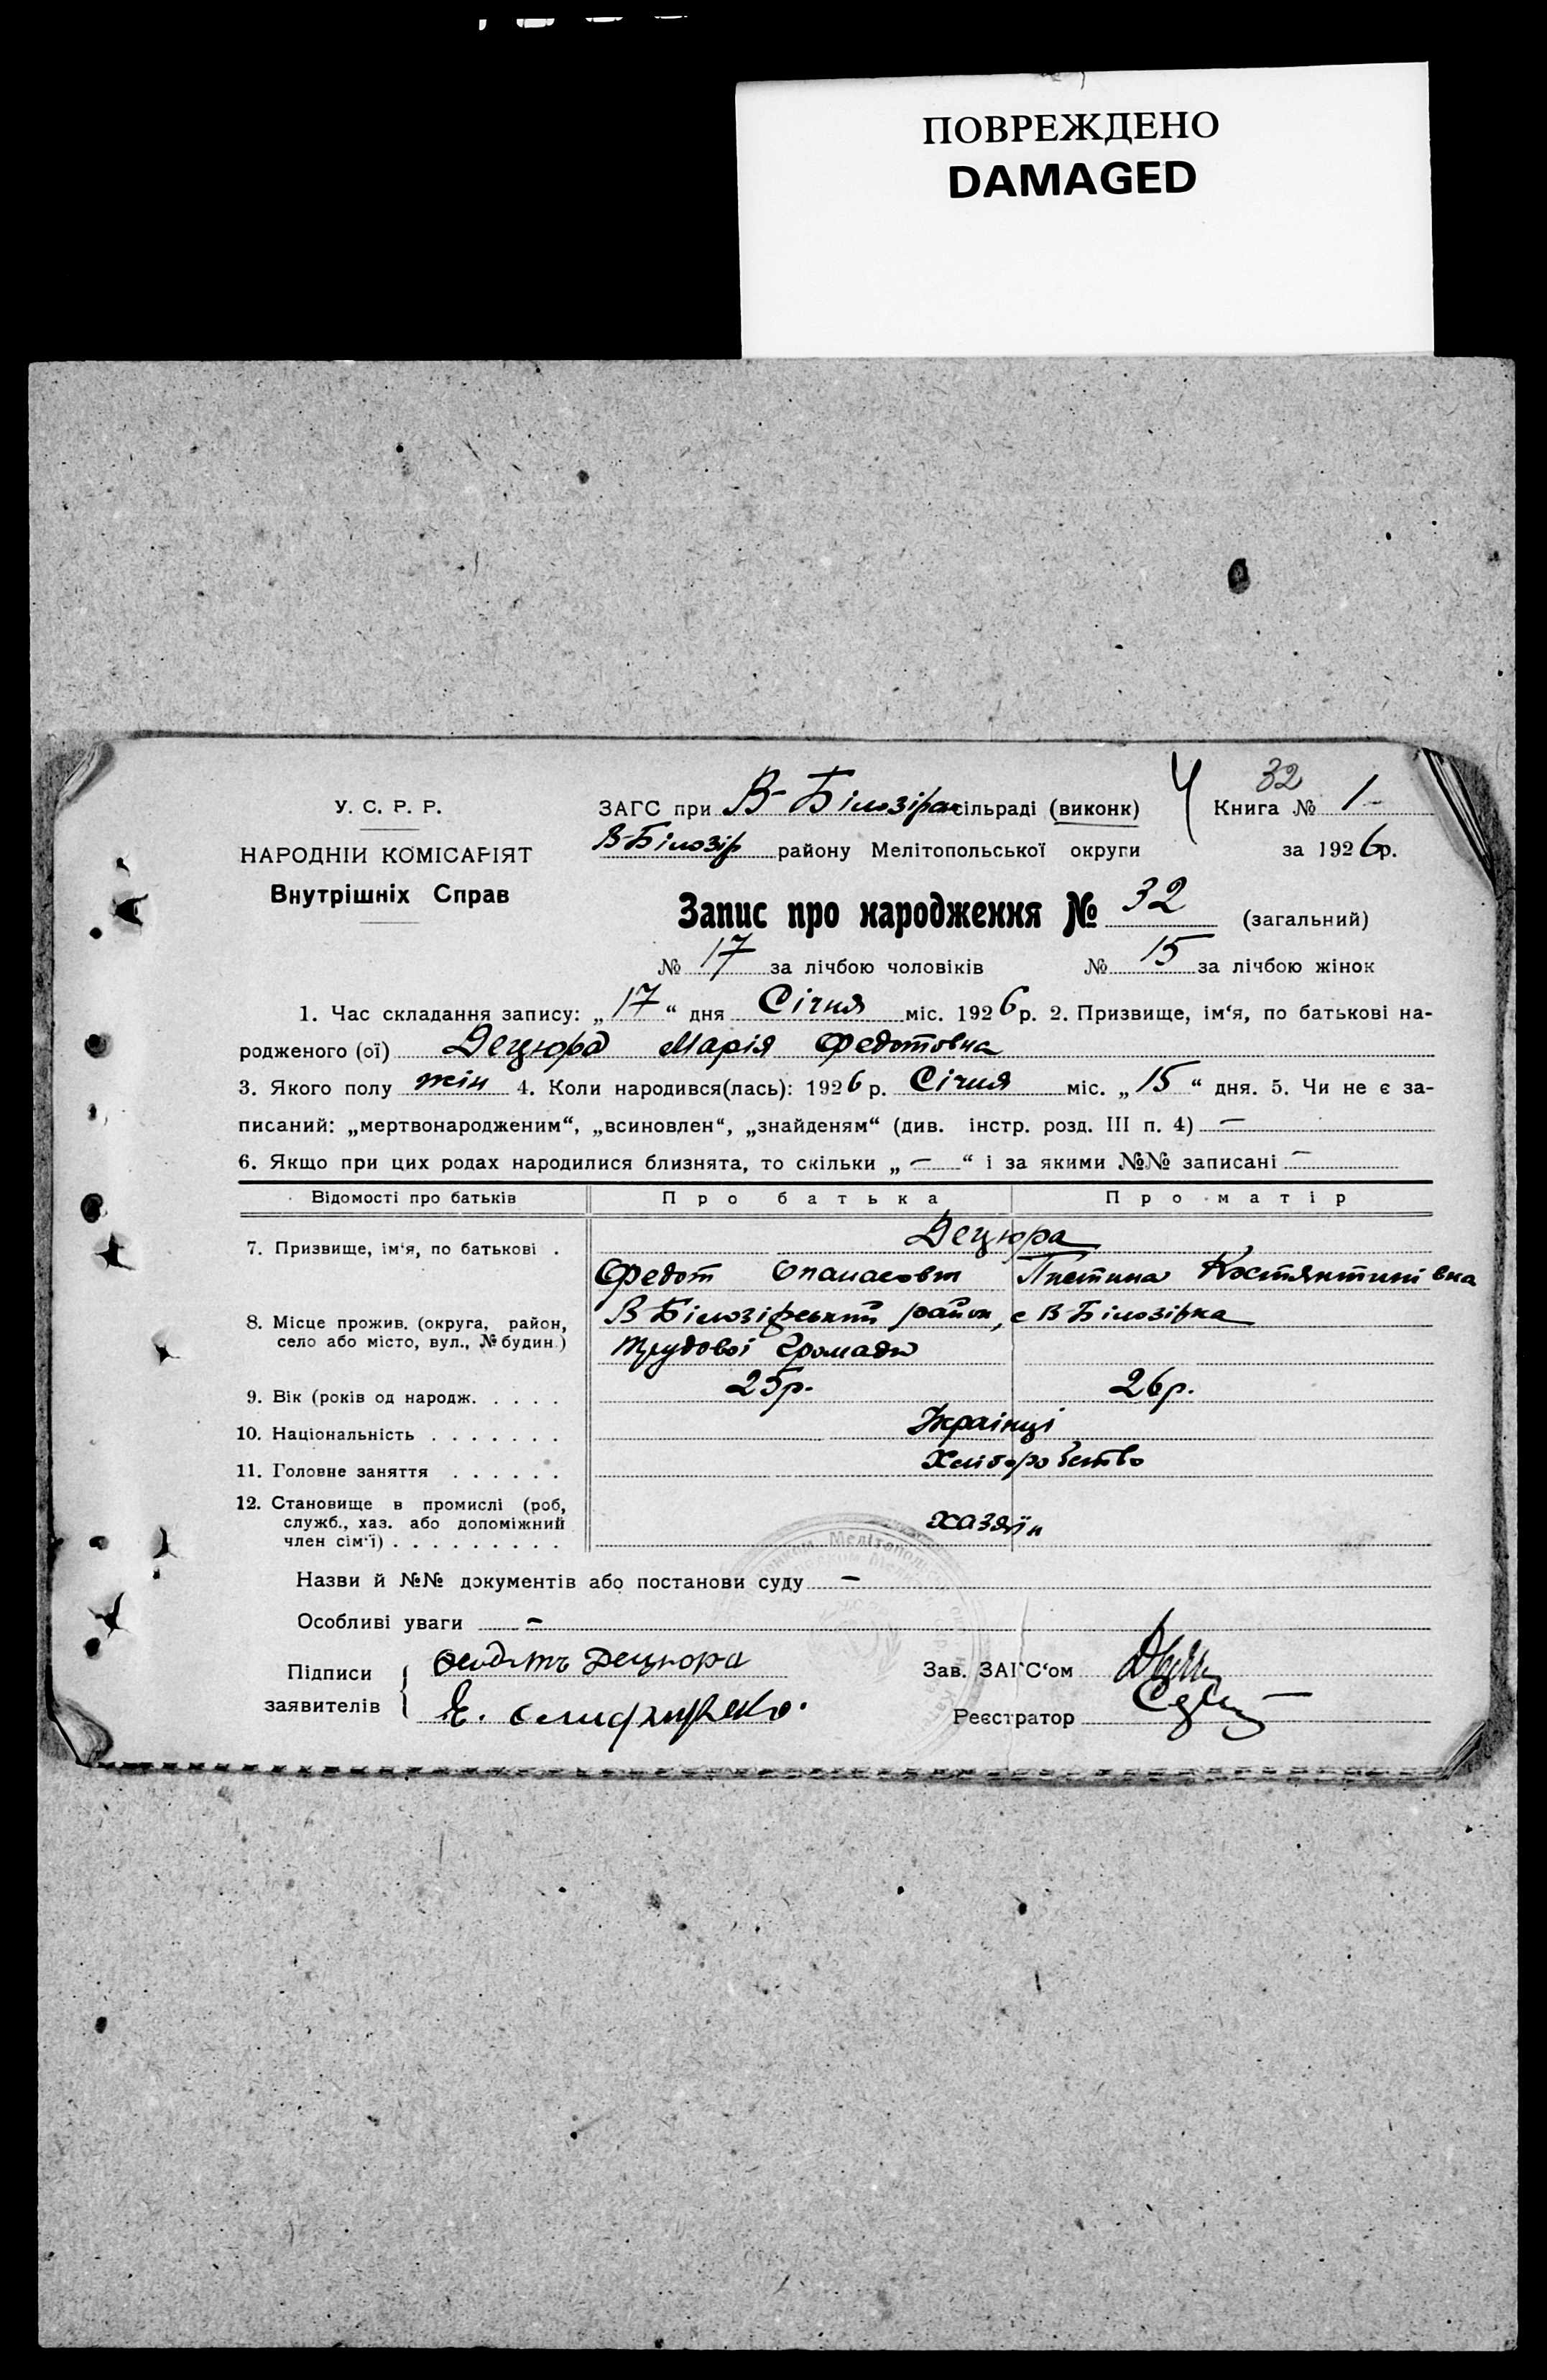 ПОВРЕЖДЕНО
DAMAGED
У. С. Р. Р.
НАРОДНІЙ КОМІСАРІЯТ
Внутрішніх Справ
ЗАГС при В-Білозірс сільраді (виконк)
32
Книга № 1
В-Білозір району Мелітопольської округи за 1926р.
Запис про народження № 32 (загальний)
№ 17 за лічбою чоловіків № 15 за лічбою жінок
1. Час складання запису: „17“ дня Січня міс. 1926р. 2. Призвище, ім‘я, по батькові на-
родженого (ої) Децюра Марія Федотовна
3. Якого полу жін 4. Коли народився(лась): 1926 р. Січня міс. „15“ дня. 5. Чи не є за-
писаний: „мертвонародженим“, „всиновлен“, „знайденям“ (див. інстр. розд. III п. 4) —
6. Якщо при цих родах народилися близнята, то скільки „—“ і за якими №№ записані —
Відомості про батьків Про батька Про матір
7. Призвище, ім‘я, по батькові . Децюра
Федот Опанасович Костянтинівна
8. Місце прожив. (округа, район, село або місто, вул., № будин.) В Білозірський район, с В Білозірка
Трудової Громади
9. Вік (років од народж. . . . . 25р. 26р.
10. Національність . . . . . . . Українці
11. Головне заняття . . . . . . Хліборобство
12. Становище в промислі (роб,
служб., хаз. або допоміжний
член сім‘ї) . . . . . . . . . хазяїн
Назви й №№ документів або постанови суду —
Особливі уваги —
Підписи заявителів Децюра
Зав. ЗАГС‘ом
Реєстратор